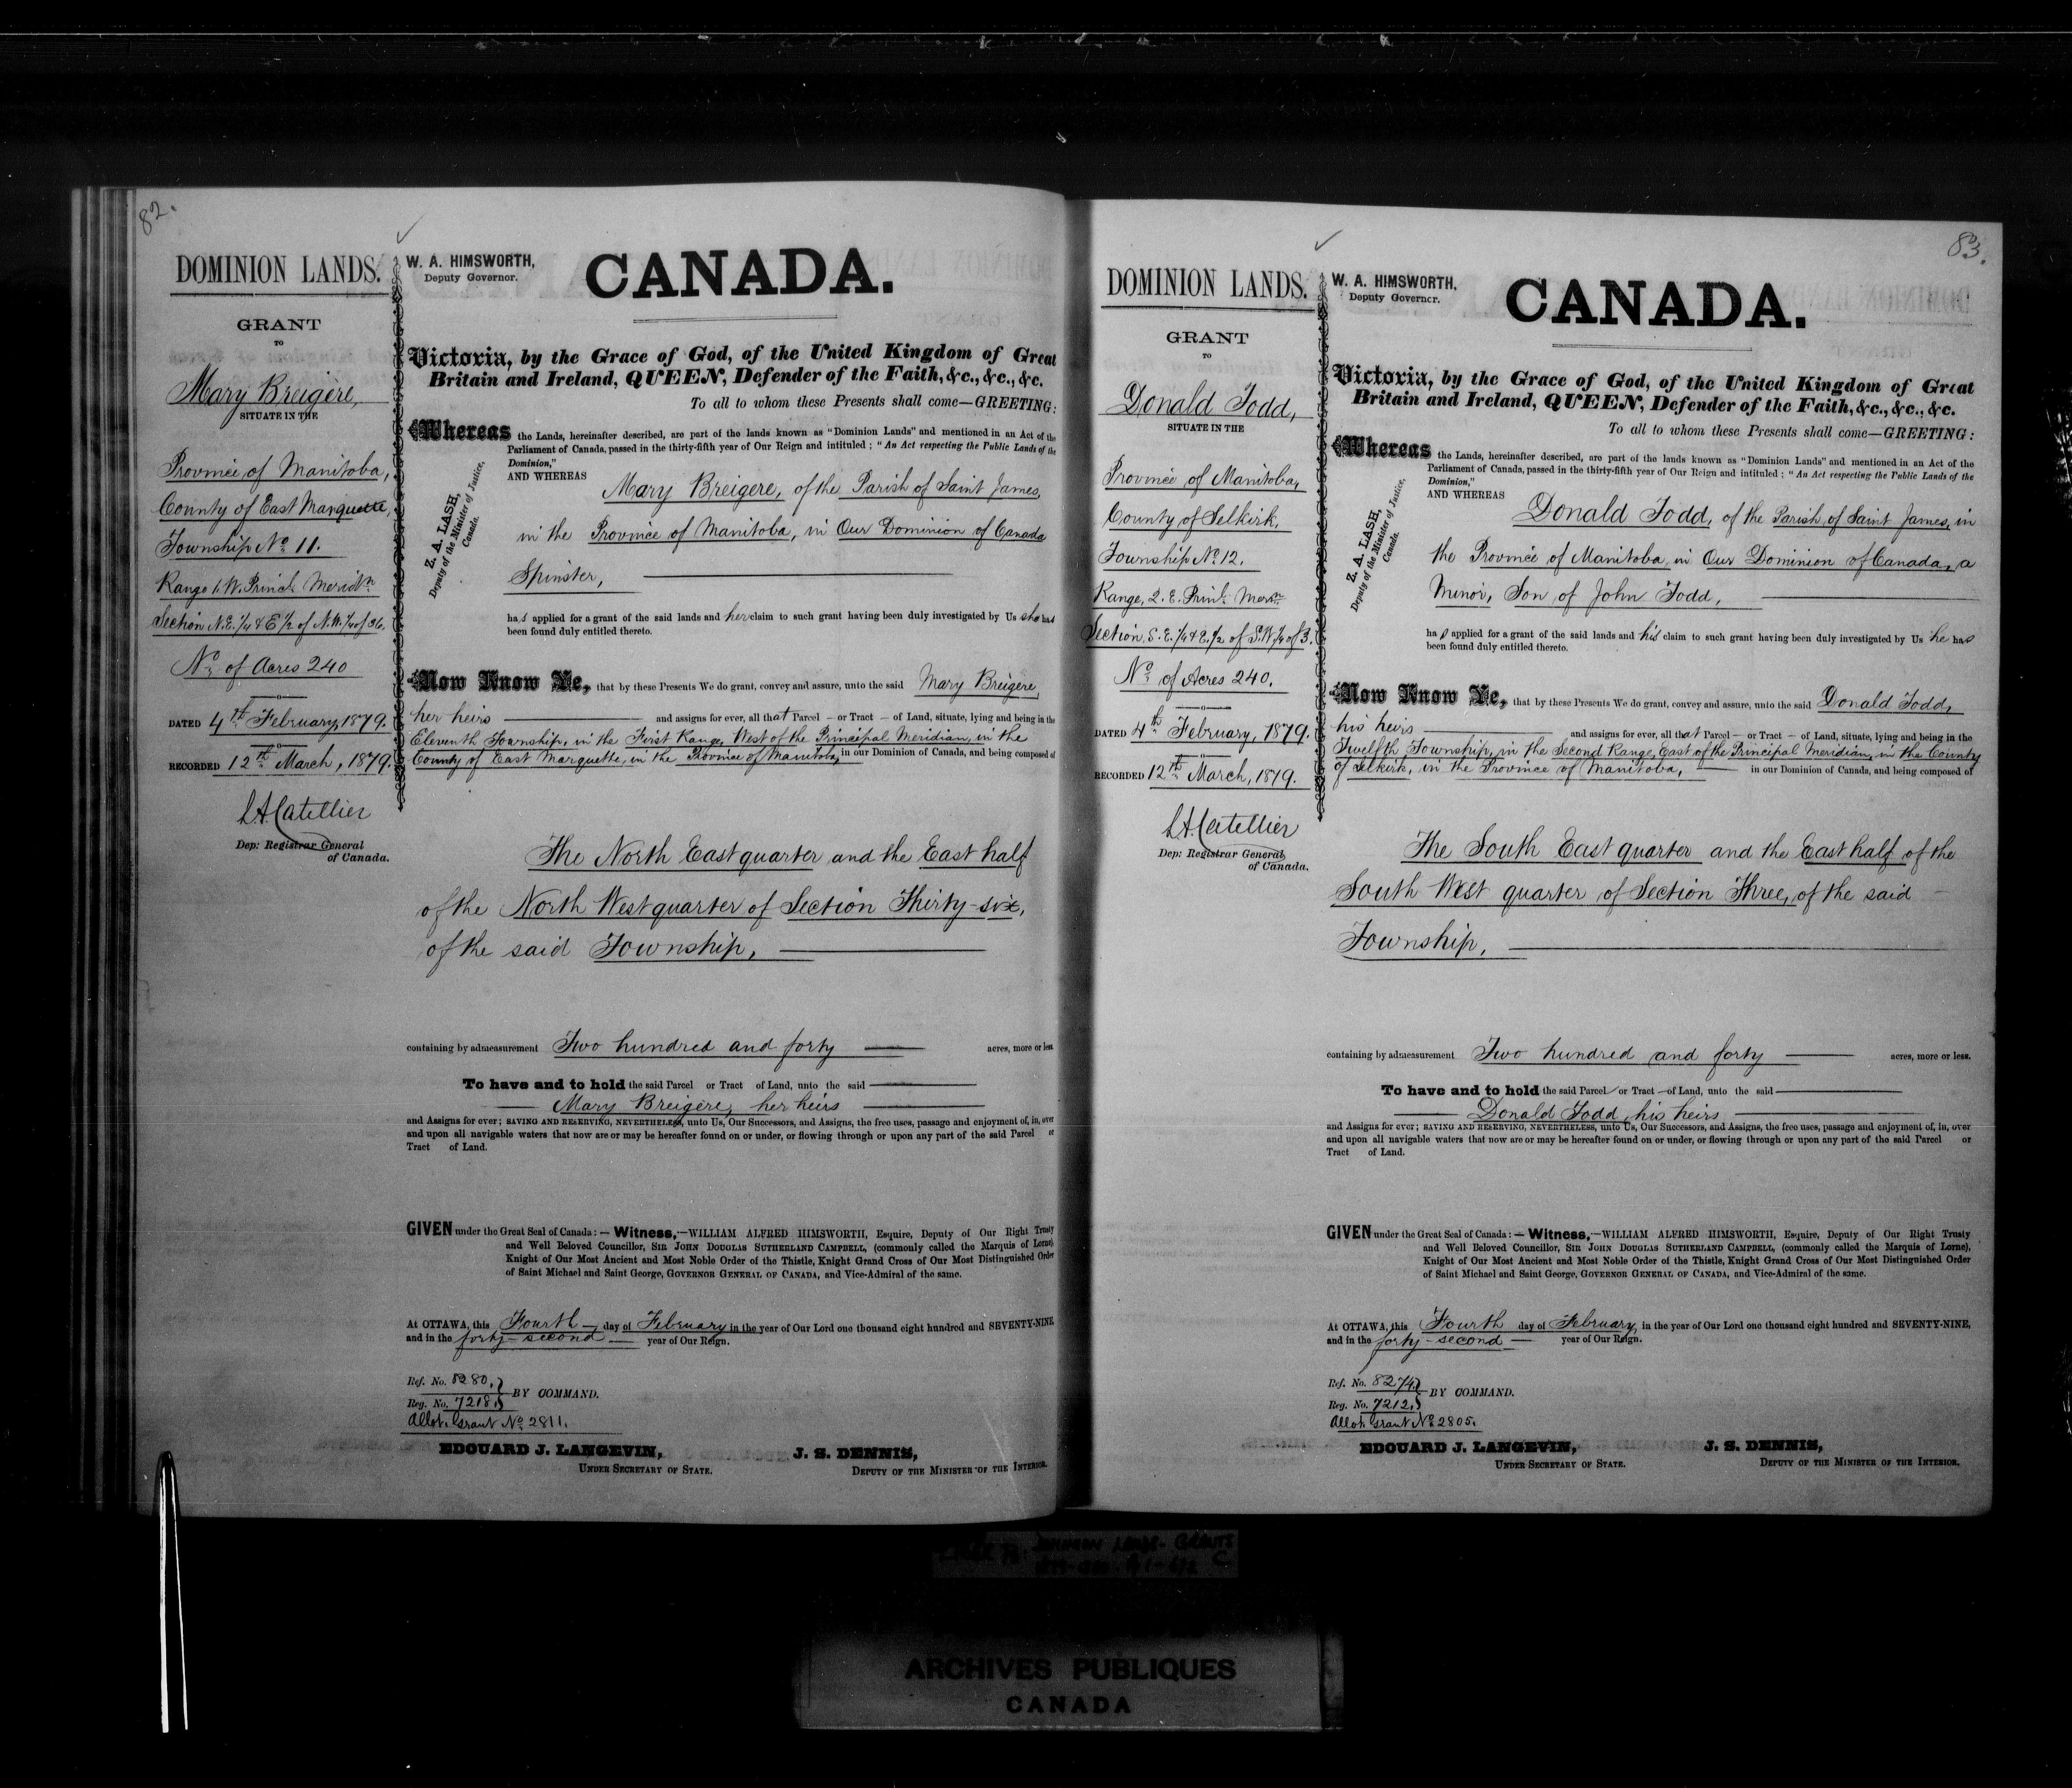 82.
DOMINION LANDS.
GRANT
TO
Mary Breigere,
SITUATE IN THE
Province of Manitoba,
County of East Marquette,
Township No. 11.
Range 1. W. Princl. Meridn.
Section N.E. 1/4 & E 1/2 of N.W. 1/4 of 36.
No. of Acres 240
DATED 4th February, 1879.
RECORDED 12th March, 1879.
L.A. Catellier
Dep: Registrar General
of Canada.
W. A. HIMSWORTH,
Deputy Governor.
CANADA.
Victoria, by the Grace of God, of the United Kingdom of Great
Britain and Ireland, QUEEN, Defender of the Faith, &c., &c., &c.
To all to whom these Presents shall come—GREETING:
Z. A. LASH,
Deputy of the Minister of Justice,
Canada.
Whereas the Lands, hereinafter described, are part of the lands known as "Dominion Lands" and mentioned in an Act of the
Parliament of Canada, passed in the thirty-fifth year of Our Reign and intituled; "An Act respecting the Public Lands of the
Dominion,"
AND WHEREAS Mary Breigere, of the Parish of Saint James,
in the Province of Manitoba, in Our Dominion of Canada
Spinster,
has applied for a grant of the said lands and her claim to such grant having been duly investigated by Us she has
been found duly entitled thereto.
Now Know Ye, that by these Presents We do grant, convey and assure, unto the said Mary Breigere,
her heirs and assigns for ever, all that Parcel – or Tract – of Land, situate, lying and being in the
Eleventh Township, in the First Range, West of the Principal Meridian, in the
County of East Marquette, in the Province of Manitoba, in our Dominion of Canada, and being composed of
The North East quarter and the East half
of the North West quarter of Section Thirty-six,
of the said Township,
containing by admeasurement Two hundred and forty acres, more or less
To have and to hold the said Parcel or Tract of Land, unto the said
Mary Breigere, her heirs
and Assigns for ever; SAVING AND RESERVING, NEVERTHELESS, unto Us, Our Successors, and Assigns, the free uses, passage and enjoyment of, in, over
and upon all navigable waters that now are or may be hereafter found on or under, or flowing through or upon any part of the said Parcel or
Tract of Land.
GIVEN under the Great Seal of Canada:—Witness,—WILLIAM ALFRED HIMSWORTH, Esquire, Deputy of Our Right Trusty
and Well Beloved Councillor, SIR JOHN DOUGLAS SUTHERLAND CAMPBELL, (commonly called the Marquis of Lorne),
Knight of Our Most Ancient and Most Noble Order of the Thistle, Knight Grand Cross of Our Most Distinguished Order
of Saint Michael and Saint George, GOVERNOR GENERAL OF CANADA, and Vice-Admiral of the same.
At OTTAWA, this Fourth day of February in the year of Our Lord one thousand eight hundred and SEVENTY-NINE,
and in the forty-second year of Our Reign.
Ref. No. 8280.
Reg. No. 7218. BY COMMAND.
Allot. Grant No. 2811.
EDOUARD J. LANGEVIN,
UNDER SECRETARY OF STATE.
J. S. DENNIS,
DEPUTY OF THE MINISTER OF THE INTERIOR.
83.
DOMINION LANDS.
GRANT
TO
Donald Todd,
SITUATE IN THE
Province of Manitoba,
County of Selkirk,
Township No. 12.
Range, 2. E. Princl. Mern.
Section, S. E. 1/4 & E. 1/2 of S.W. 1/4 of 3.
No. of Acres 240.
DATED 4th February, 1879.
RECORDED 12th March, 1879.
L.A. Catellier
Dep: Registrar General
of Canada.
W. A. HIMSWORTH,
Deputy Governor.
CANADA.
Victoria, by the Grace of God, of the United Kingdom of Great
Britain and Ireland, QUEEN, Defender of the Faith, &c., &c., &c.
To all to whom these Presents shall come—GREETING:
Z. A. LASH,
Deputy of the Minister of Justice,
Canada.
Whereas the Lands, hereinafter described, are part of the lands known as "Dominion Lands" and mentioned in an Act of the
Parliament of Canada, passed in the thirty-fifth year of Our Reign and intituled; "An Act respecting the Public Lands of the
Dominion,"
AND WHEREAS Donald Todd, of the Parish of Saint James, in
the Province of Manitoba, in Our Dominion of Canada, a
Minor, Son of John Todd,
has applied for a grant of the said lands and his claim to such grant having been duly investigated by Us he has
been found duly entitled thereto.
Now Know Ye, that by these Presents We do grant, convey and assure, unto the said Donald Todd,
his heirs and assigns for ever, all that Parcel – or Tract – of Land, situate, lying and being in the
Twelfth Township, in the Second Range, East of the Principal Meridian, in the County
of Selkirk, in the Province of Manitoba, in our Dominion of Canada, and being composed of
The South East quarter and the East half of the
South West quarter of Section Three, of the said
Township,
containing by admeasurement Two hundred and forty acres, more or less.
To have and to hold the said Parcel or Tract of Land, unto the said
Donald Todd, his heirs
and Assigns for ever; SAVING AND RESERVING, NEVERTHELESS, unto Us, Our Successors, and Assigns, the free uses, passage and enjoyment of, in, over
and upon all navigable waters that now are or may be hereafter found on or under, or flowing through or upon any part of the said Parcel or
Tract of Land.
GIVEN under the Great Seal of Canada:—Witness,—WILLIAM ALFRED HIMSWORTH, Esquire, Deputy of Our Right Trusty
and Well Beloved Councillor, SIR JOHN DOUGLAS SUTHERLAND CAMPBELL, (commonly called the Marquis of Lorne),
Knight of Our Most Ancient and Most Noble Order of the Thistle, Knight Grand Cross of Our Most Distinguished Order
of Saint Michael and Saint George, GOVERNOR GENERAL OF CANADA, and Vice-Admiral of the same.
At OTTAWA, this Fourth day of February, in the year of Our Lord one thousand eight hundred and SEVENTY-NINE,
and in the forty-second year of Our Reign.
Ref. No. 8274.
Reg. No. 7212. BY COMMAND.
Allot. Grant No. 2805.
EDOUARD J. LANGEVIN,
UNDER SECRETARY OF STATE.
J. S. DENNIS,
DEPUTY OF THE MINISTER OF THE INTERIOR.
DOMINION LANDS- GRANTS
ARCHIVES PUBLIQUES
CANADA